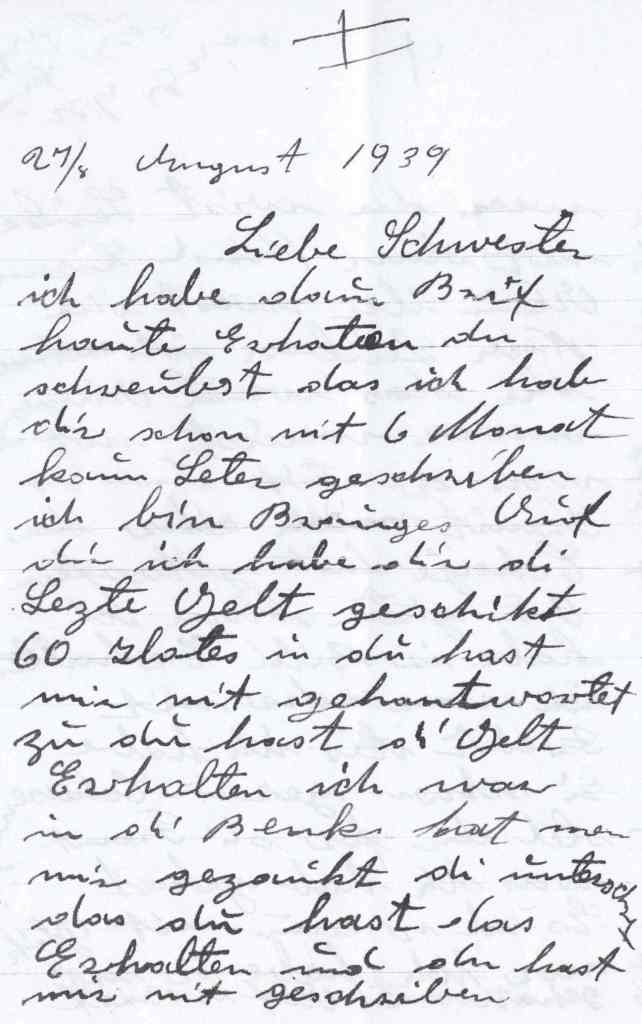 27/8 August 1939
Liebe Schwester
ich habe dain Brif
haute Erhaten du
schreubst das ich hab
dir schon nit 6 Monat
kain Leter geschriben
ich bin
dir ich habe dir di
Lezte Gelt geschikt
60 zlotes in du hast
mir nit gehantwortet
zu du hast di Gelt
Erhalten ich war
in di Benk hat men
mir gezaikt di untersch
das du hast das
Erhalten und du hast
mir nit geschriben